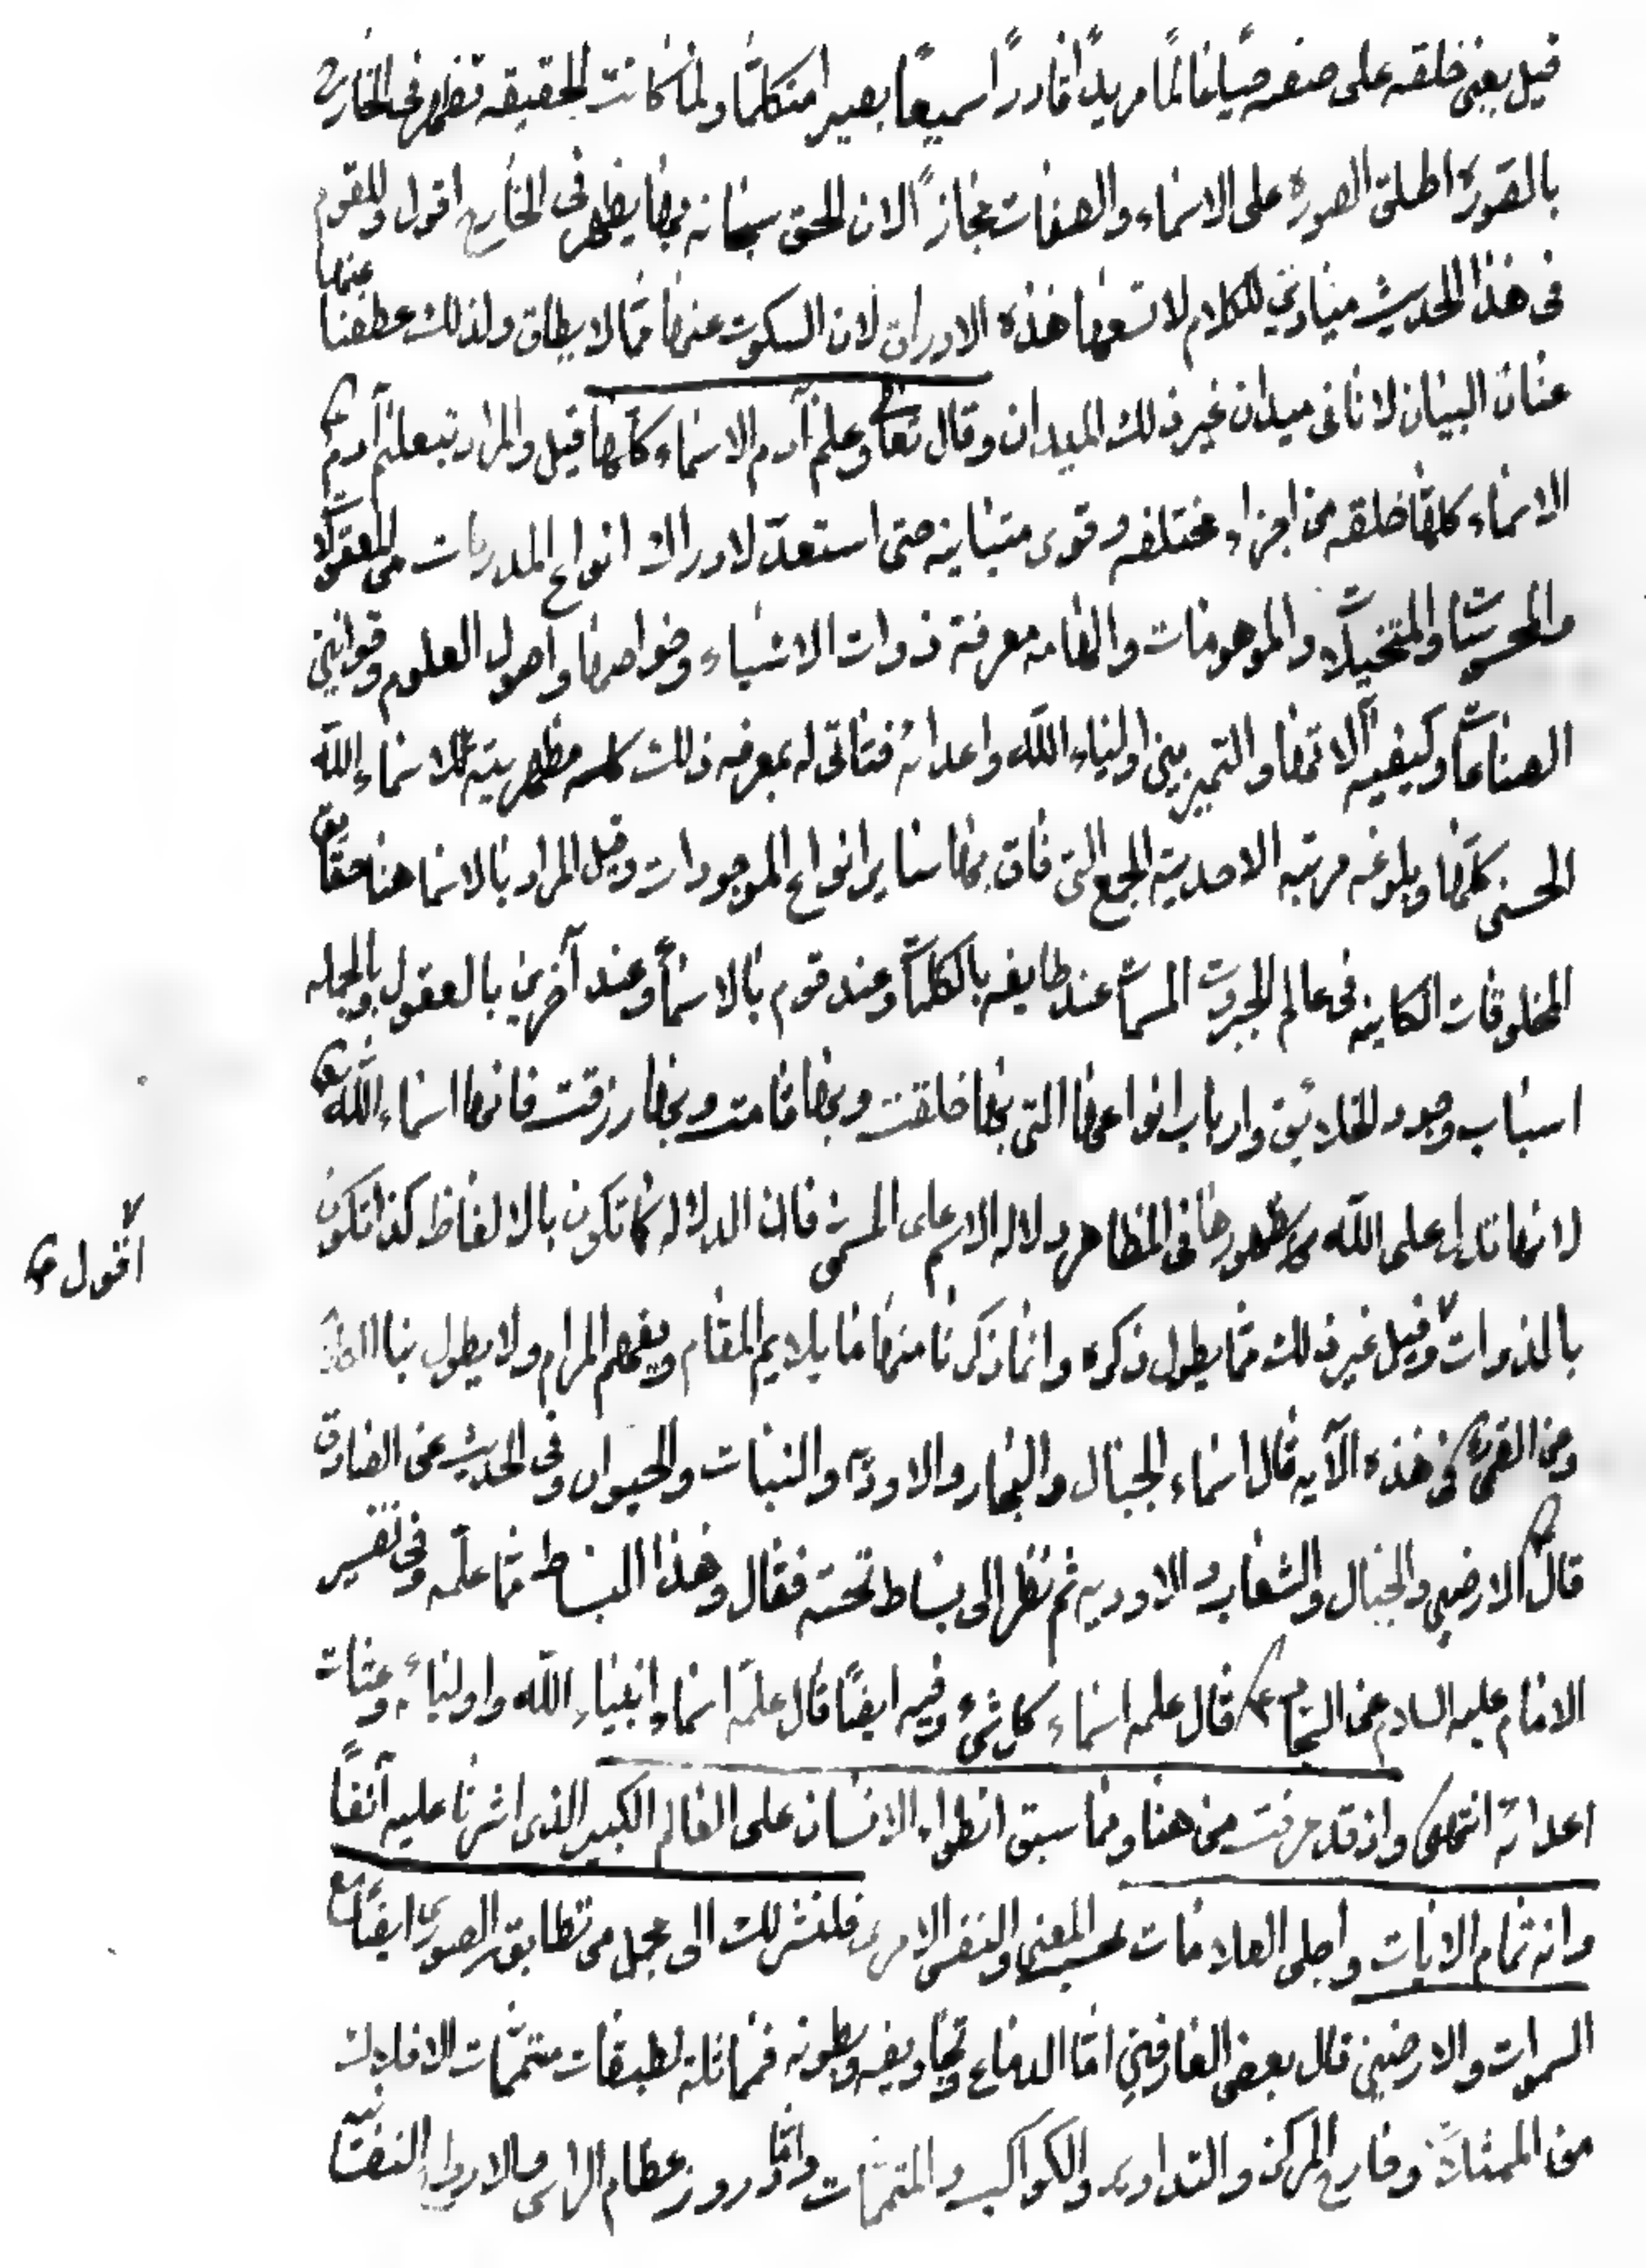 قيل يعنى خلقه على صفته حيا عالمًا مريدًا قادرًا سميعًا بصيرا متكلمًا ولما كانت الحقيقه تظهر فى الخارج
بالصورة اطلق الصورة على الاسماء والصفات مجازًا لان الحق سبحانه بها يظهر فى الخارج اقول وللقوم
فى هذا الحديث ميادين للكلام لا تسعها هذه الاوراق لان السكوت عنها مما لا يطاق ولذلك عطفنا عنها
عنان البيان لا نا فى ميدان غير ذلك الميدان وقال تعالى وعلم آدم الاسماء كلها قيل والمراد بتعليم آدم ع
الاسماء كلها خلقه من اجزاء مختلفه وقوى متباينه حتى استعدّ لادراك انواع المدركات من المعقولات
والمحسوسات والمتخيلات والموهومات والهامه معرفة ذوات الاشياء وخواصها واصول العلوم وقوانين
الصناعات وكيفيه آلاتها والتميز بين اولياء الله واعدائه فتاتى له بمعرفه ذلك كله مظهريته للاسماء الله
الحسنى كلها وبلوغه مرتبه الاحدية الجمع التى فاق بها ساير انواع الموجودات وقيل المراد بالاسما هنا حقايق
المخلوقات الكاينه فى عالم الجبروت المسماة عند طايفه بالكلمات وعند قوم بالاسماء وعند آخرين بالعقول وبالجمله
اسباب وجود الخلائق وارباب انواعها التى بها خلقت وبها قامت وبها رزقت فانها اسماء الله تع
لانها تدل على الله بظهورها فى المظاهر دلاله الاسم على المسمى فان الدلاله كما تكون بالالفاظ كذا تكون
بالذوات وقيل غير ذلك مما يطول ذكره وانما ذكرنا منها ما يلايم المقام ويفهم المرام ولا يطول بنا الكلام
اقول ع
وعن القمى فى هذه الآيه قال اسماء الجبال والبحار والاودية والنبات والحيوان وفى الحديث عن الصادق
قال الارضين والجبال والشعاب والاوديه ثم نظر الى بساط تحته فقال وهذا البساط مما علّمه وفى تفسير
الامام عليه السلام عن السجاد ع قال علمه اسماء كل شئ وفيه ايضًا قال علمه اسماء انبياء الله واوليائه وعتات
اعدائه انتهى واذ قد عرفت من هنا ومما سبق انطواء الانسان على العالم الكبير الذى اشرنا عليه آنفًا
وانه تمام الايات واجلى العلامات بحسب المعنى والنفس الامرى فلنشر لك الى مجمل من تطابق الصورى ايضًا مع
السموات والارضين قال بعض العارفين امّا الدماغ وتجاويفه وبطونه فمماثلة لطبقات متممّات الافلاك
من الممثلات وخارج المركز والتداوير والكواكب والمتممات وامّا دروز عظام الراس والاوراد النفسانيه